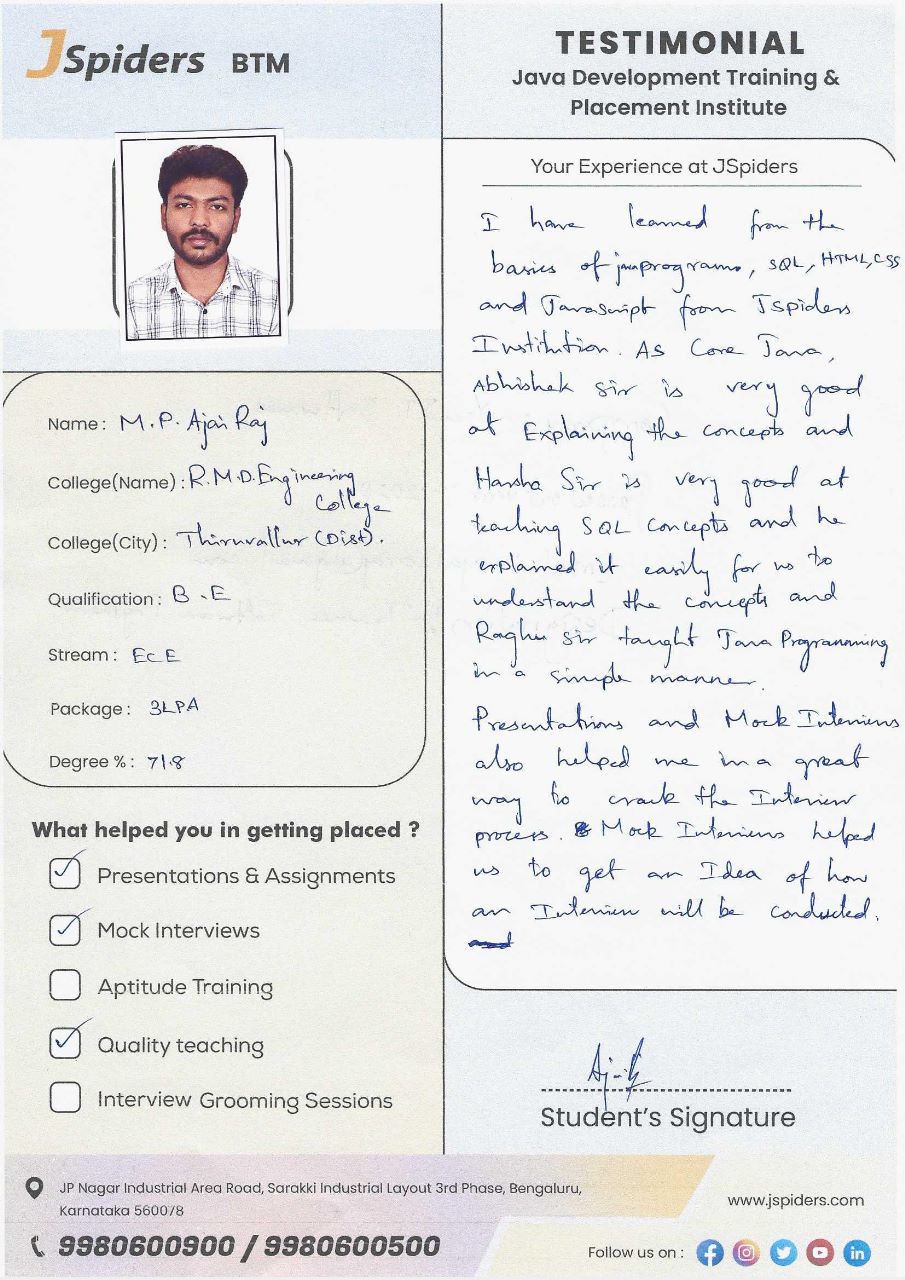 JSpiders BTM
TESTIMONIAL
Java Development Training &
Placement Institute
Name : M.P. Ajai Raj
College(Name) : R.M.D. Engineering
College
College(City) : Thiruvallur (Dist).
Qualification : B.E
Stream : EcE
Package : 3LPA
Degree % : 71.8
What helped you in getting placed ?
Presentations & Assignments
Mock Interviews
Aptitude Training
Quality teaching
Interview Grooming Sessions
Your Experience at JSpiders
I have learned from the
basics of java programs, SQL, HTML, CSS
and Javascript from Jspiders
Institution. As Core Java,
Abhishek sir is very good
at Explaining the concepts and
Harsha Sir is very good at
teaching SQL concepts and he
explained it easily for us to
understand the concepts and
Raghu sir taught Java Programming
in a simple manner.
Presentations and Mock Interviews
also helped me in a great
way to crack the Interview
process. Mock Interviews helped
us to get an Idea of how
an Interview will be conducted.
Student's Signature
JP Nagar Industrial Area Road, Sarakki Industrial Layout 3rd Phase, Bengaluru,
Karnataka 560078
9980600900 / 9980600500
www.jspiders.com
Follow us on :